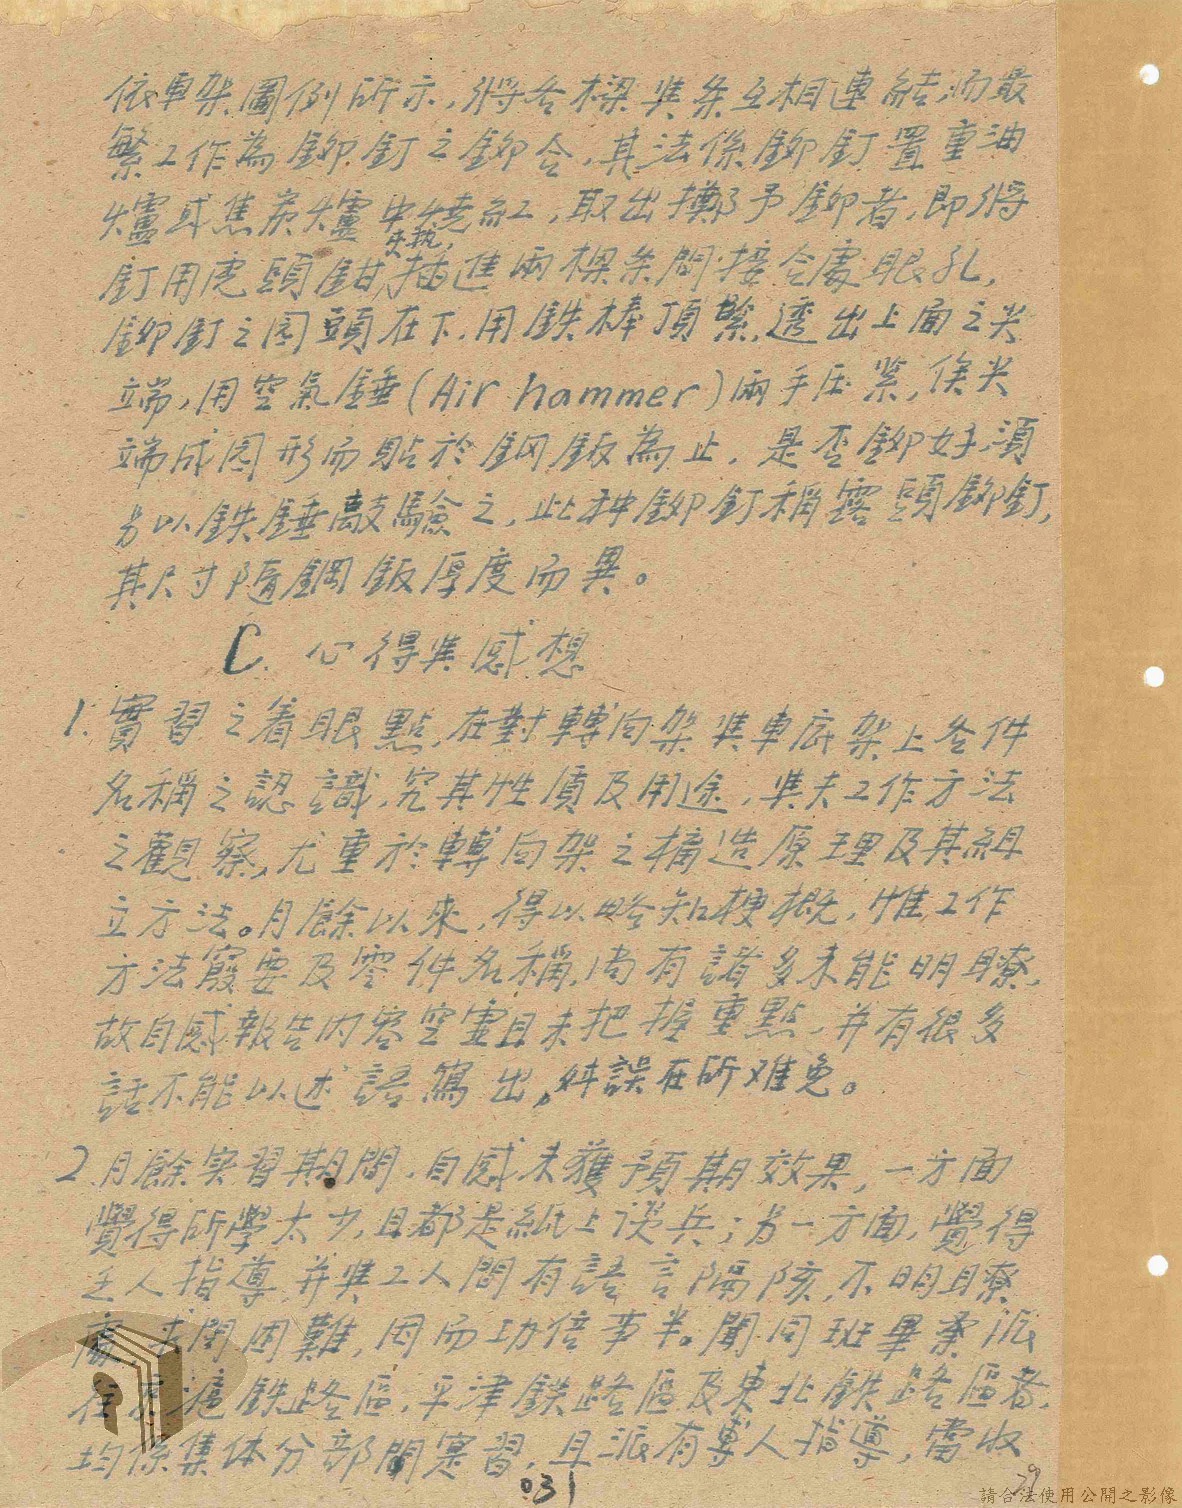 依車架圖例所示，將各樑與条互相連結，而最
繁工作為鉚釘之鉚合，其法係鉚釘置重油
爐或焦炭爐中燒紅，取出擲予鉚者，即將
夾執，
釘用虎頭鉗插進兩樑条間接合處眼孔，
鉚釘之圓頭在下，用鉄棒頂緊，透出上面之尖
端，用空氣錘(Air hammer)兩手压緊，俟尖
端成圆形而貼於鋼飯為止，是否鉚好，須
另以鉄錘敲驗之，此种鉚釘稱露頭鉚釘，
其尺寸隨鋼飯厚度而異。
C. 心得與感想
1. 實習之着眼點，在對轉向架與車底架上各件
名稱之認識，究其性質及用途，與夫工作方法
之觀察，尤重於轉向架之構造原理及其組
立方法。月餘以來，得以略知梗概，惟工作
方法廢要及零件名稱，尚有諸多未能明瞭，
故自感報告內容空虛且未把握重點，并有很多
話不能以述語寫出，舛誤在所难免。
2. 月餘实習期間，自感未獲預期效果，一方面
覺得所學太少，且都是紙上談兵；另一方面，覺得
乏人指導，并與工人間有語言隔陔，不明瞭
處，求問困難，因而功倍事半。聞同班畢業派
往京滬鉄路區，平津鉄路區及東北鉄路區者，
均係集体分部門實習，且派有專人指導，當收
031
29
請合法使用公開之影像